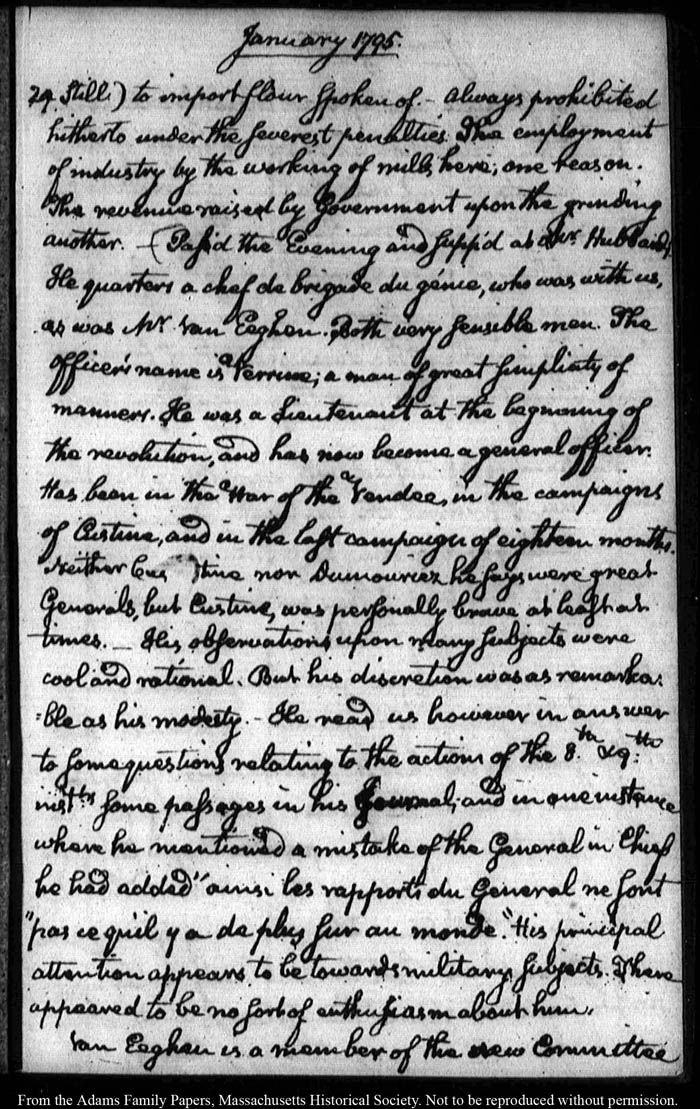 January 1795.
29. Still.) to import flour spoken of. - always prohibited
hitherto under the severest penalties. The employment
of industry by the working of mills here, one reason.
The revenue raised by Government upon the grinding
another. - (Pass'd the Evening and supp'd at Mr. Hubbard's
He quarters a chef de brigade du génie, who was with us,
as was Mr. Van Eeghen. Both very sensible men. The
officer's name is Verrine; a man of great simplicity of
manners. He was a Lieutenant at the beginning of
the revolution, and has now become a general officer.
Has been in the War of the Vendee, in the campaigns
of Custine, and in the last campaign of eighteen months.
Neither Custine nor Dumouriez he says were great
Generals, but Custine, was personally brave at least at
times. - His observations upon many subjects were
cool and rational. But his discretion was as remarka:
:ble as his modesty. - He read us however in answer
to some questions relating to the actions of the 8.th & 9.th
inst.ts some passages in his Journal, and in one instance
where he mentioned a mistake of the General in Chief
he had added "ainsi les rapports du General ne sont
"pas ce qu'il y a de plus sur au monde." His principal
attention appears to be towards military subjects. There
appeared to be no sort of enthusiasm about him.
Van Eeghen is a member of the new Committee
From the Adams Family Papers, Massachusetts Historical Society. Not to be reproduced without permission.